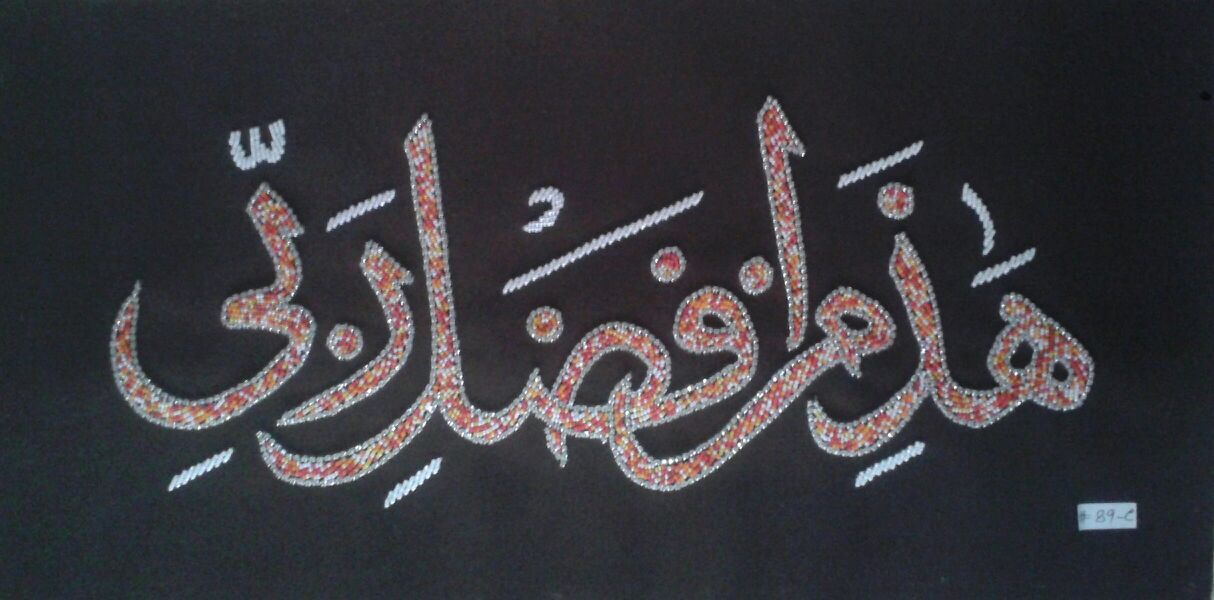 هَٰذَا مِنْ فَضْلِ رَبِّي
# 89-C